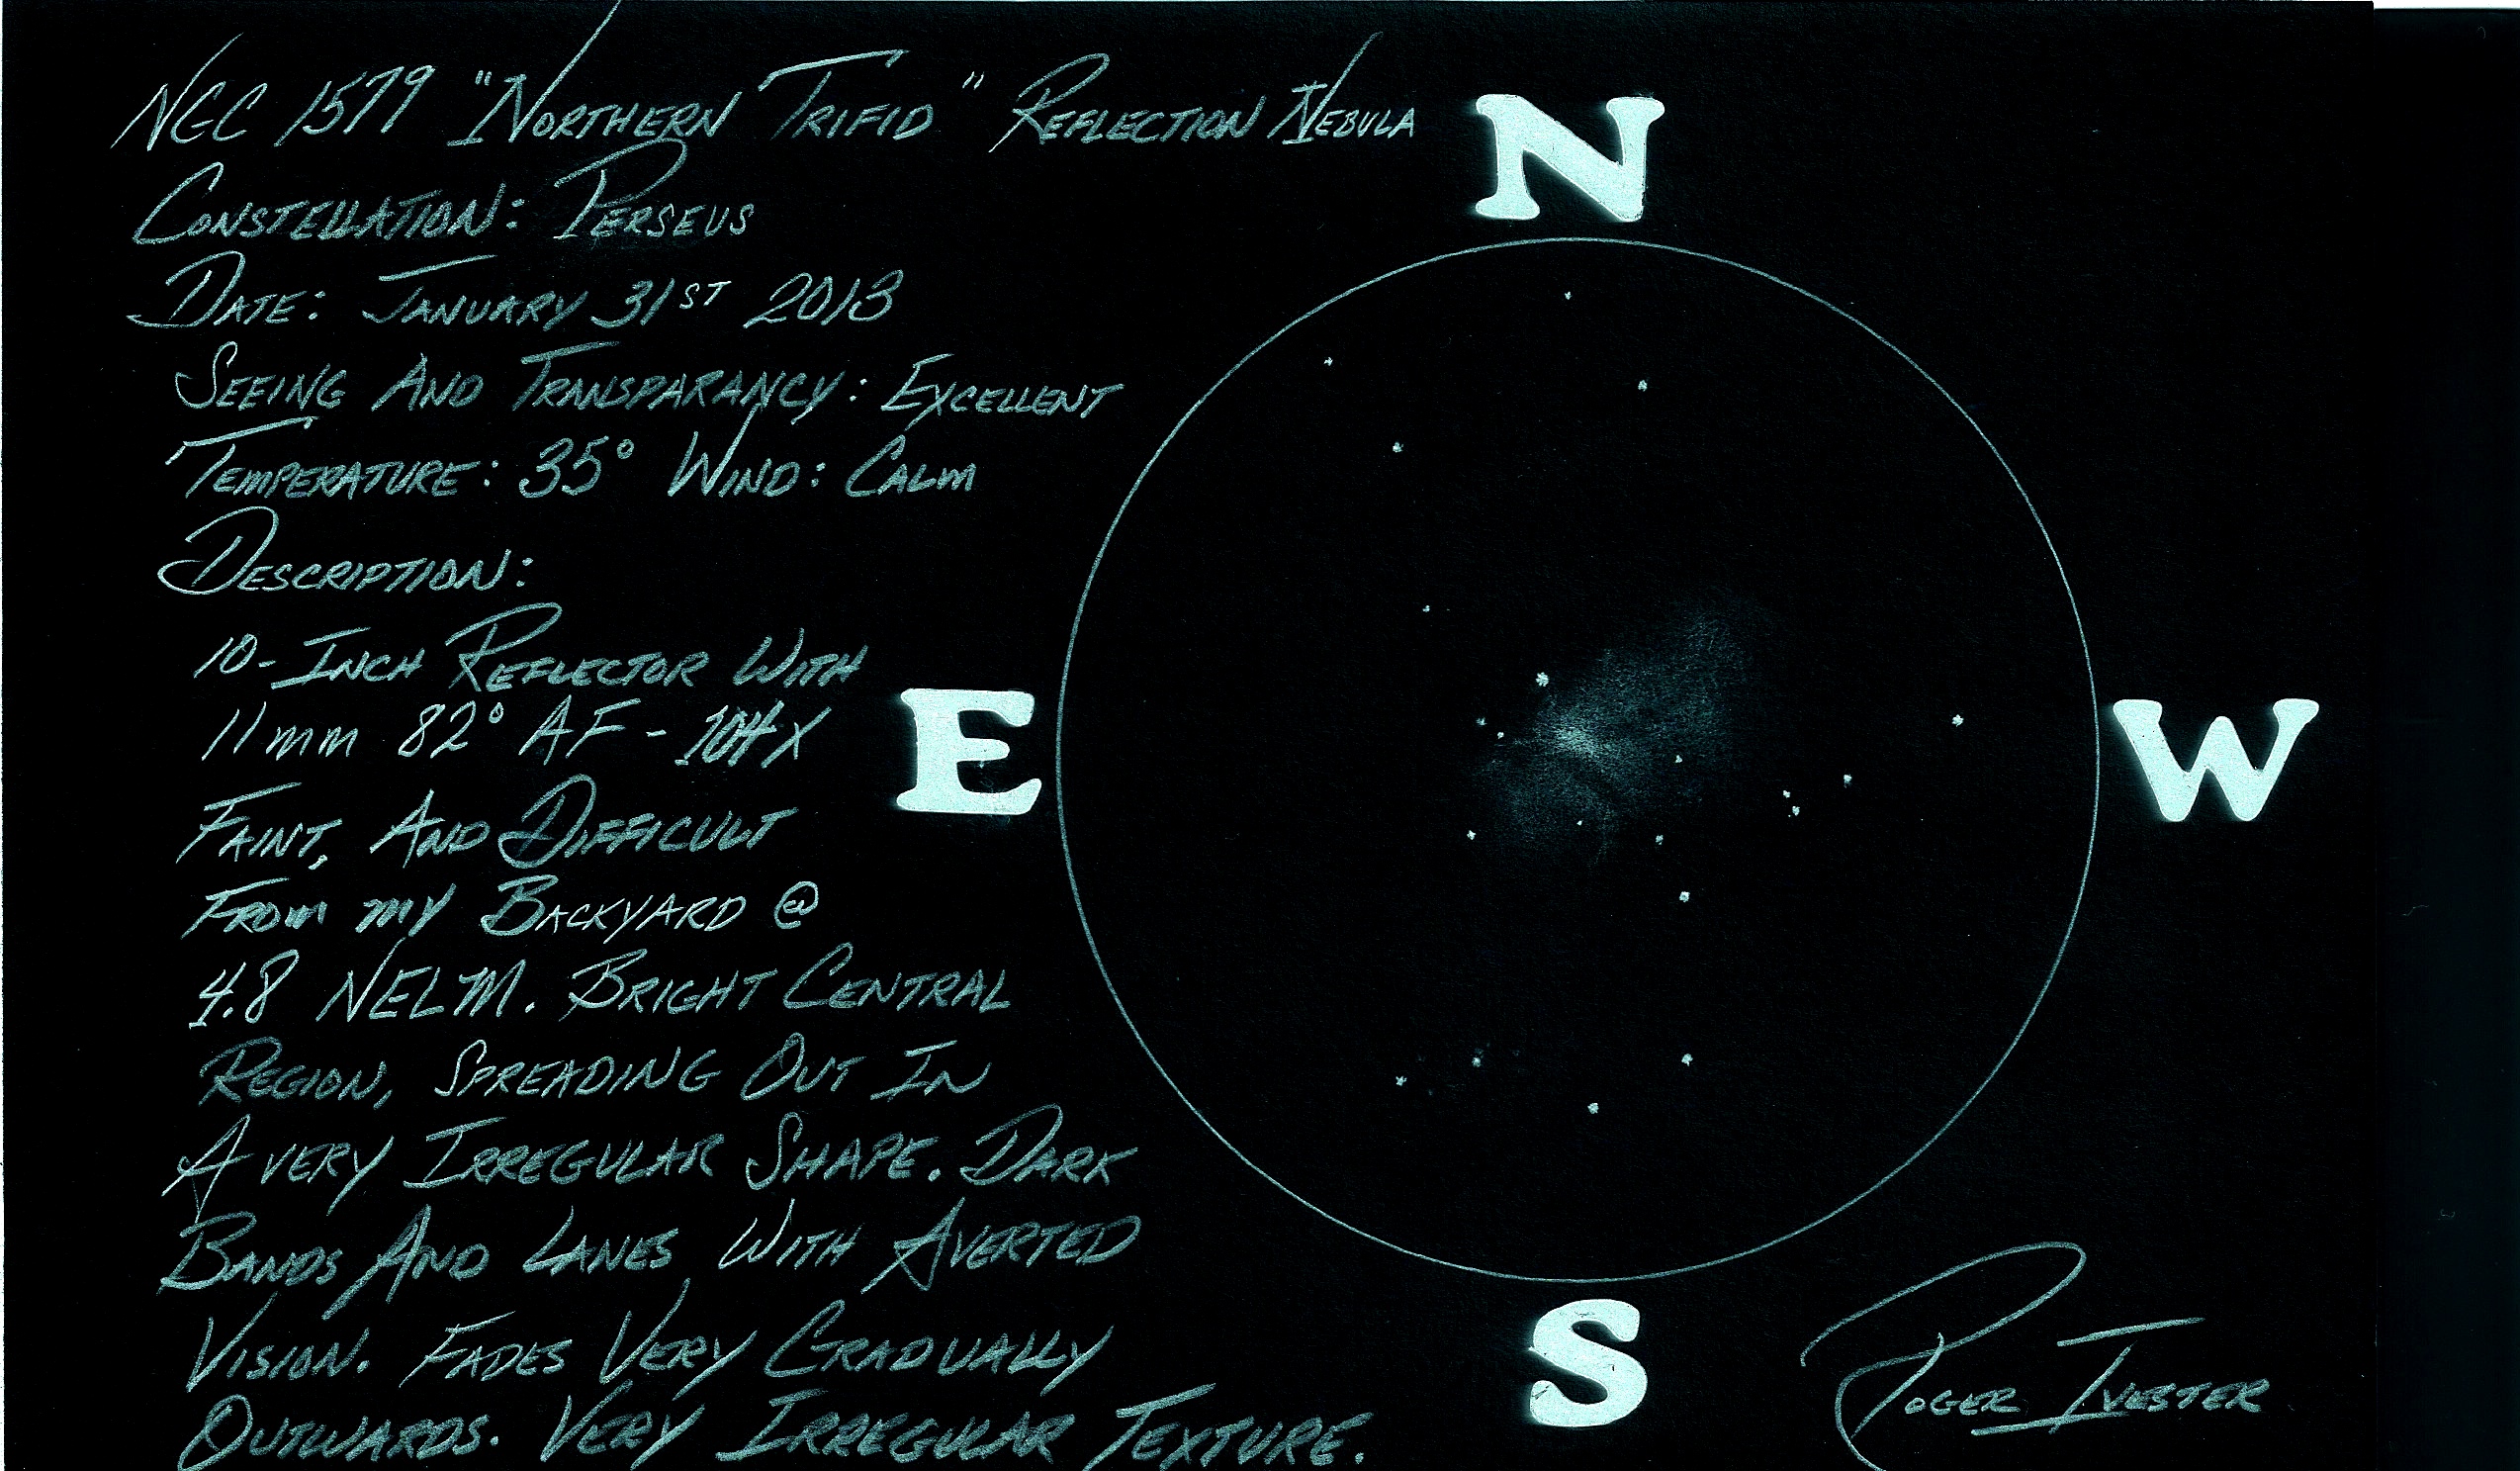 NGC 1579 "Northern Trifid" Reflection Nebula
Constellation: Perseus
Date: January 31st 2013
Seeing And Transparancy: Excellent
Temperature: 35° Wind: Calm
Description:
10-Inch Reflector With
11mm 82° AF - 104X
Faint, And Difficult
From my Backyard @
4.8 NELM. Bright Central
Region, Spreading Out In
A very Irregular Shape. Dark
Bands And Lanes With Averted
Vision. Fades Very Gradually
Outwards. Very Irregular Texture.
N
E
W
S
Roger Ivester